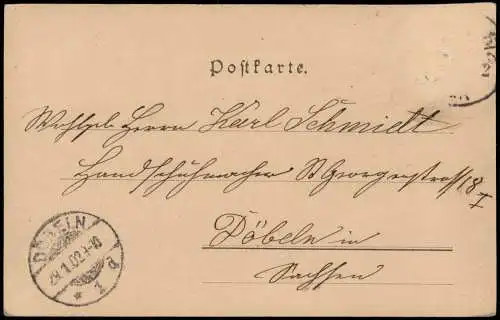 Postkarte.
Wohlgeb. Herrn Karl Schmidt
Handschuhmacher St. Georgenstrasse 18
I
Döbeln in
Sachsen
DÖBELN
29.1.02.
* 1 d